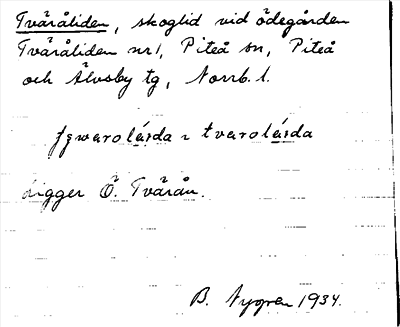 Tväråliden, skoglid vid ödegården
Tväråliden nr 1, Piteå sn, Piteå
och Älvsby tg, Norrb. l.
tvarolı́ı̣da
ligger Ö. Tvärån.
B. Nygren 1934.